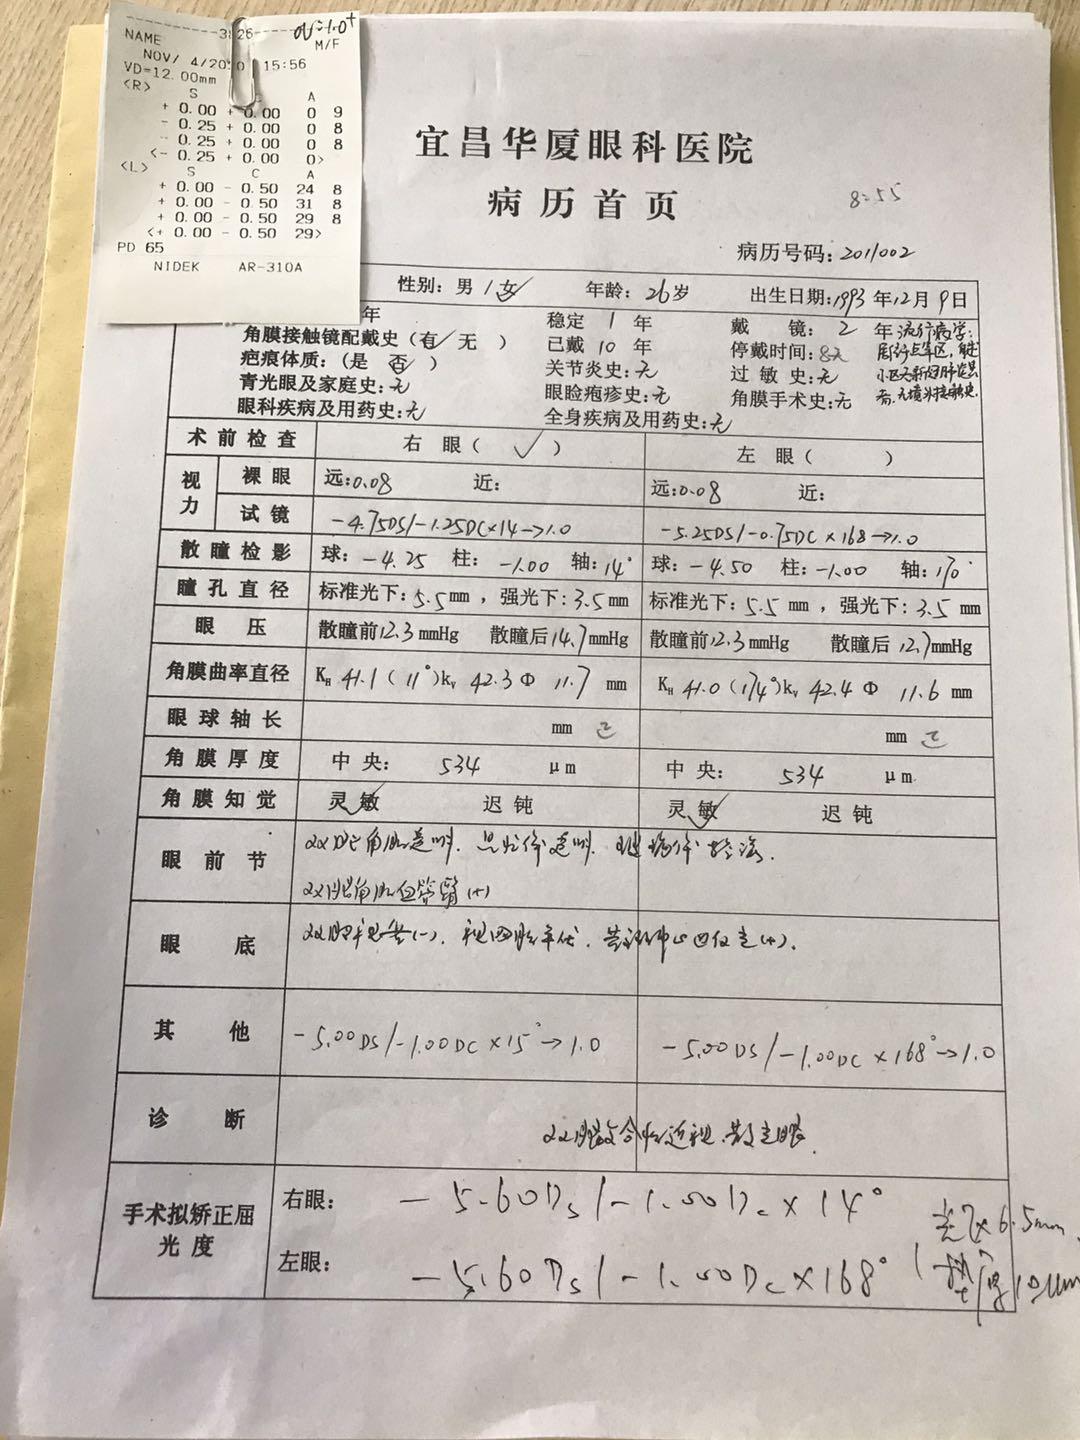 3826 ou:1.0+
NAME M/F
NOV/ 4/2020 15:56
VD=12.00mm
<R>
S C A
+ 0.00 + 0.00 0 9
- 0.25 + 0.00 0 8
- 0.25 + 0.00 0 8
<- 0.25 + 0.00 0>
<L>
S C A
+ 0.00 - 0.50 24 8
+ 0.00 - 0.50 31 8
+ 0.00 - 0.50 29 8
<+ 0.00 - 0.50 29>
PD 65
NIDEK AR-310A
宜昌华厦眼科医院
病历首页
8:55
病历号码:2011002
性别: 男/女✓ 年龄: 26岁 出生日期:1993年12月9日
年 稳定 1 年 戴镜: 2 年 流行病学:
角膜接触镜配戴史(有✓ 无 ) 已戴 10 年 停戴时间:8天
疤痕体质: (是 否✓) 关节炎史:无 过敏史:无
青光眼及家庭史:无 眼睑疱疹史:无 角膜手术史:无
眼科疾病及用药史:无 全身疾病及用药史:无
术前检查 右眼( ✓ ) 左眼( )
视力 裸眼 远:0.08 近: 远:0.08 近:
试镜 -4.75DS/-1.25DC×14→1.0 -5.25DS/-0.75DC×168→1.0
散瞳检影 球: -4.25 柱: -1.00 轴: 14° 球: -4.50 柱: -1.00 轴: 170°
瞳孔直径 标准光下: 5.5mm, 强光下: 3.5mm 标准光下: 5.5mm, 强光下: 3.5mm
眼压 散瞳前12.3mmHg 散瞳后14.7mmHg 散瞳前12.3mmHg 散瞳后12.7mmHg
角膜曲率直径 KH 41.1 (11°)kv 42.3 Φ 11.7 mm KH 41.0 (174°)kv 42.4 Φ 11.6 mm
眼球轴长 mm mm
角膜厚度 中央: 534 μm 中央: 534 μm
角膜知觉 灵敏✓ 迟钝 灵敏✓ 迟钝
眼前节 双眼角膜透明. 晶状体透明. 玻璃体
双眼角膜血管翳(+)
眼底 视网膜平伏. 黄斑中心凹反光(+).
其他 -5.00DS/-1.00DC×15°→1.0 -5.00DS/-1.00DC×168°→1.0
诊断 双眼复合性近视散光眼.
手术拟矫正屈光度 右眼: -5.60Ds/-1.00Dc×14°
左眼: -5.60Ds/-1.00Dc×168°
光区6.5mm.